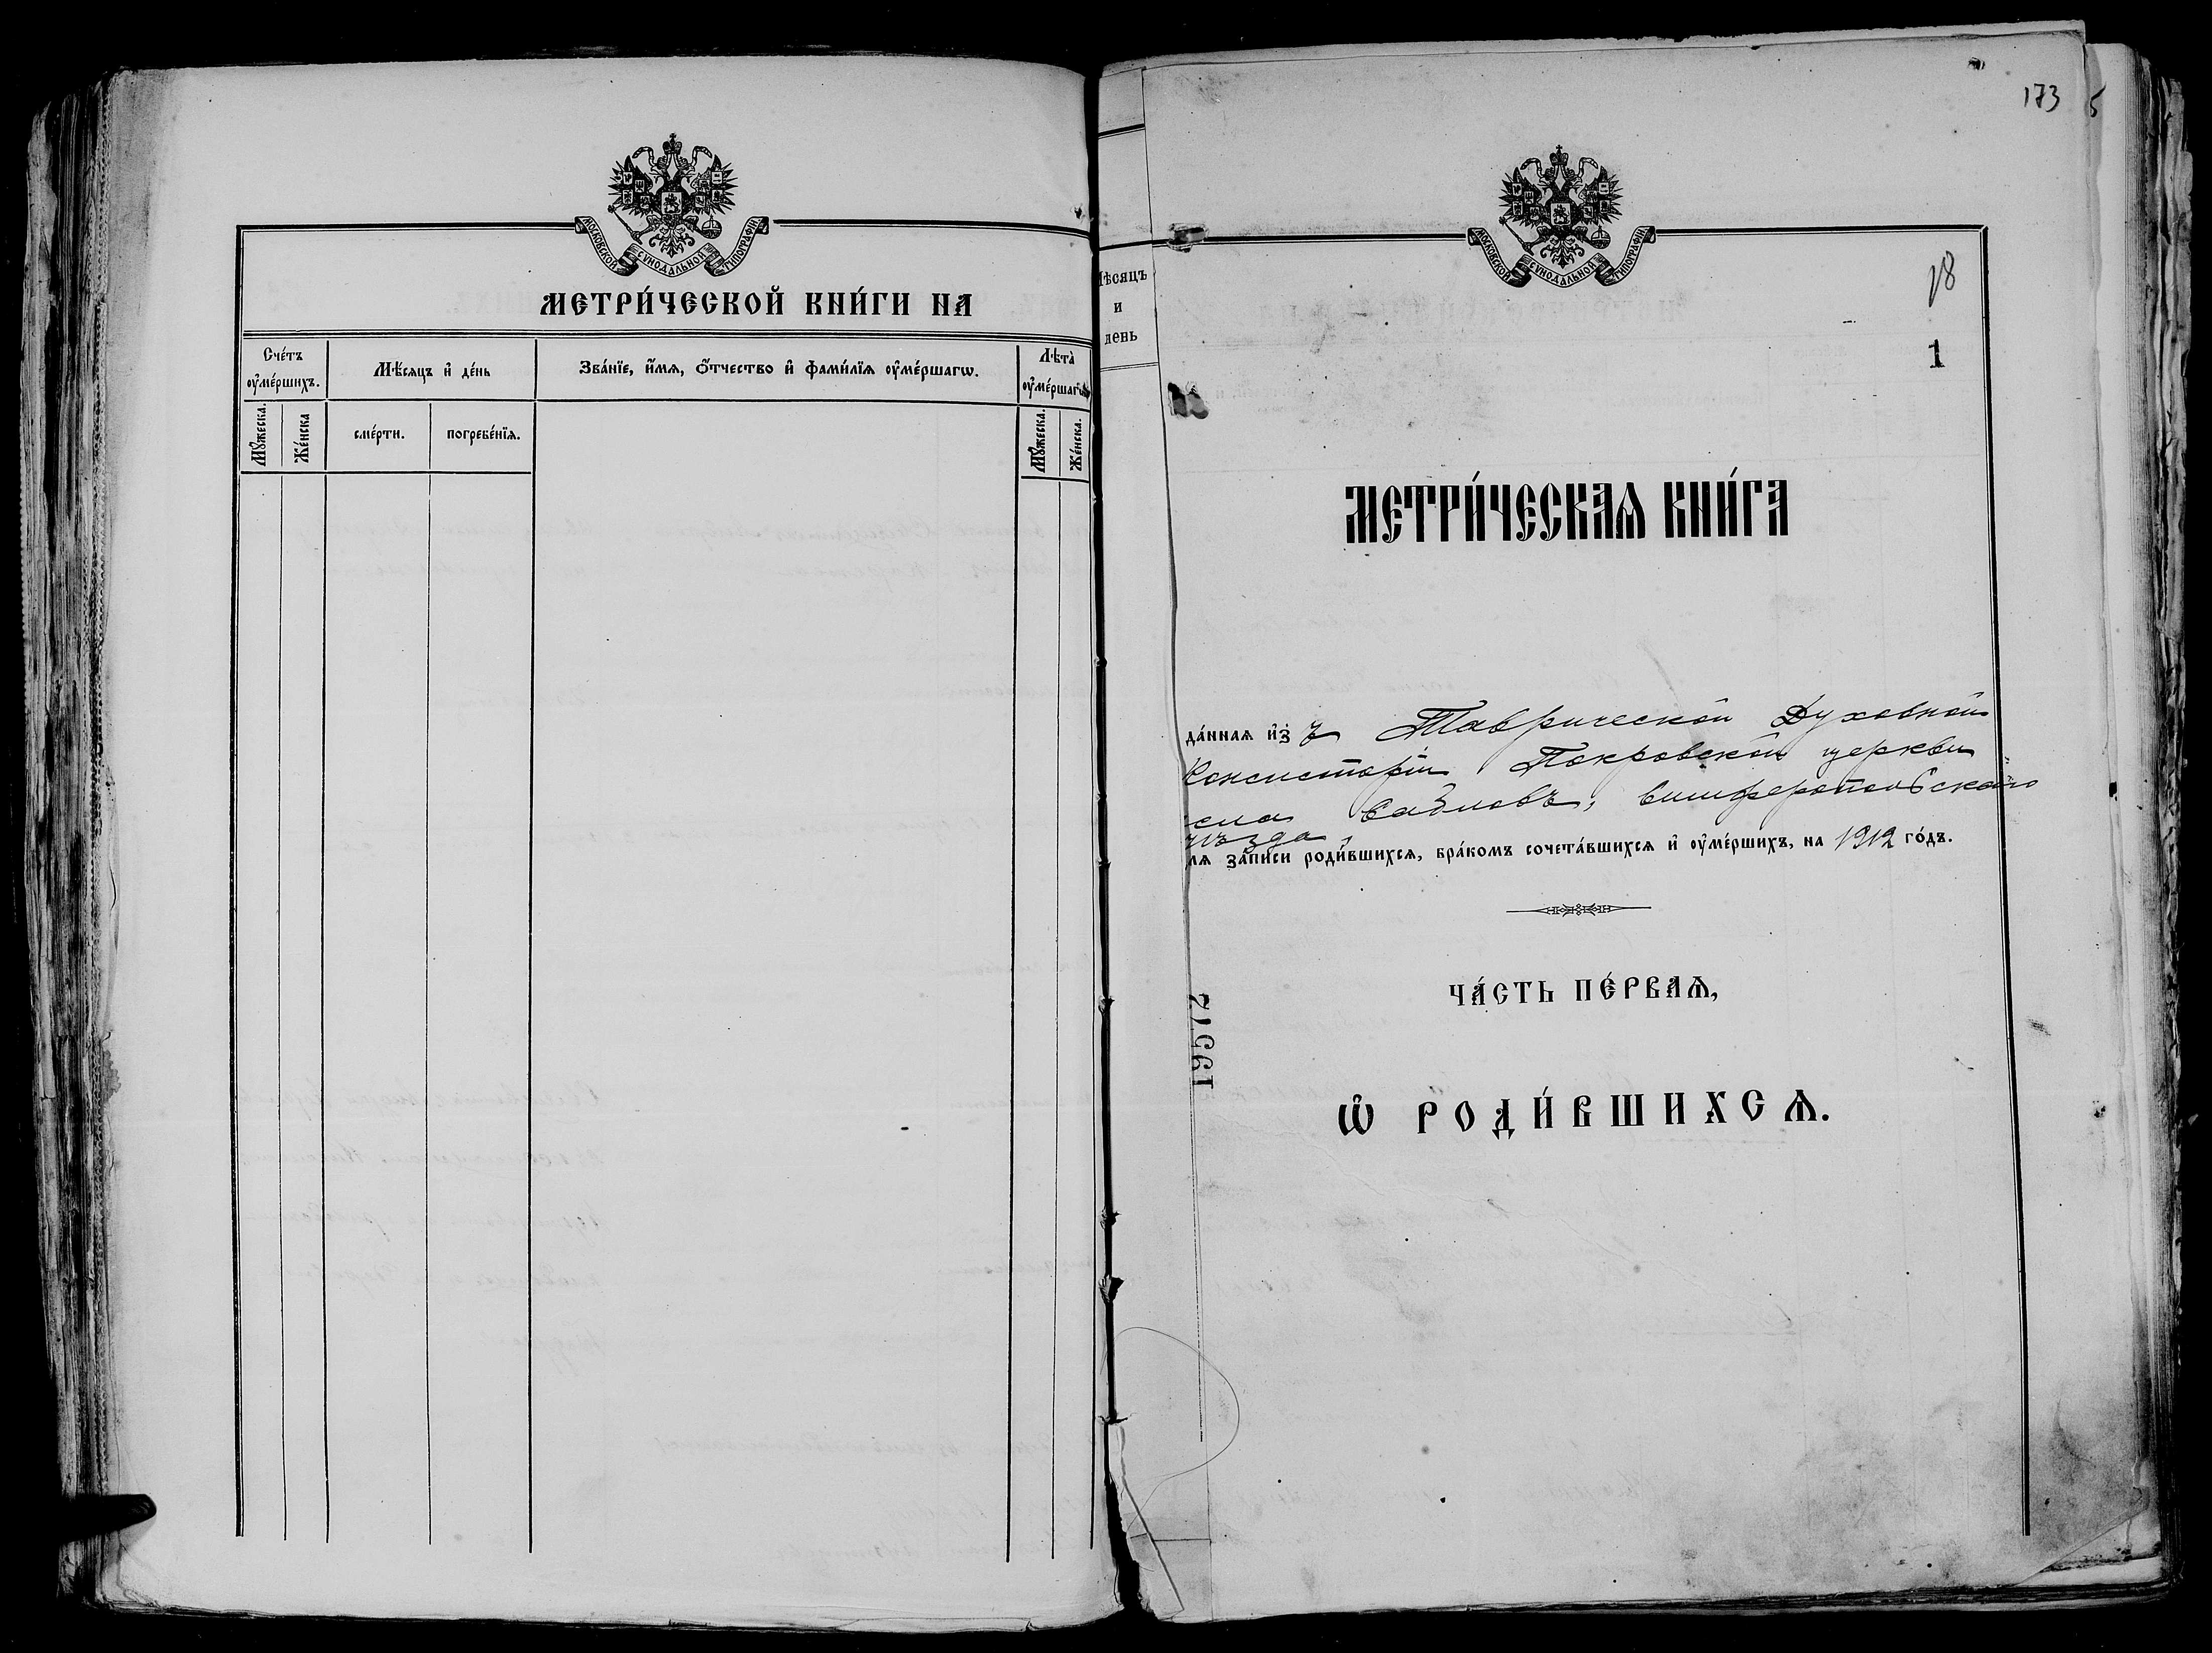 МОСКОВСКОЙ СѴНОДАЛЬНОЙ ТИПОГРАФІИ
МЕТРИ́ЧЕСКОЙ КНИ́ГИ НА
Сче́тъ ᲂу҆ме́ршихъ.
Мѣ́сяцъ и҆ де́нь
Зва́нїе, и҆́мѧ, ѻ҆́тчество и҆ фами́лїѧ ᲂу҆ме́ршагѡ.
Лѣта̀ ᲂу҆ме́ршагѡ
Мꙋ́жеска.
Же́нска
сме́рти.
погребе́нїѧ.
Мꙋ́жеска.
Же́нска.
ѣсяцъ
и
день
173
5
МОСКОВСКОЙ СѴНОДАЛЬНОЙ ТИПОГРАФІИ
18
1
МЕТРИ́ЧЕСКАѦ КНИ́ГА
да́ннаѧ и҆з̾ Таврической Духовной
Консисторіи Покровской церкви
села Сабловъ, Симферопольскаго
уѣзда,
лѧ за́писи роди́вшихсѧ, бра́комъ сочета́вшихсѧ и҆ ᲂу҆ме́ршихъ, на 1912 го́дъ.
ЧА́СТЬ ПЕ́РВАѦ,
Ѡ҆ РОДИ́ВШИХСѦ.
19517